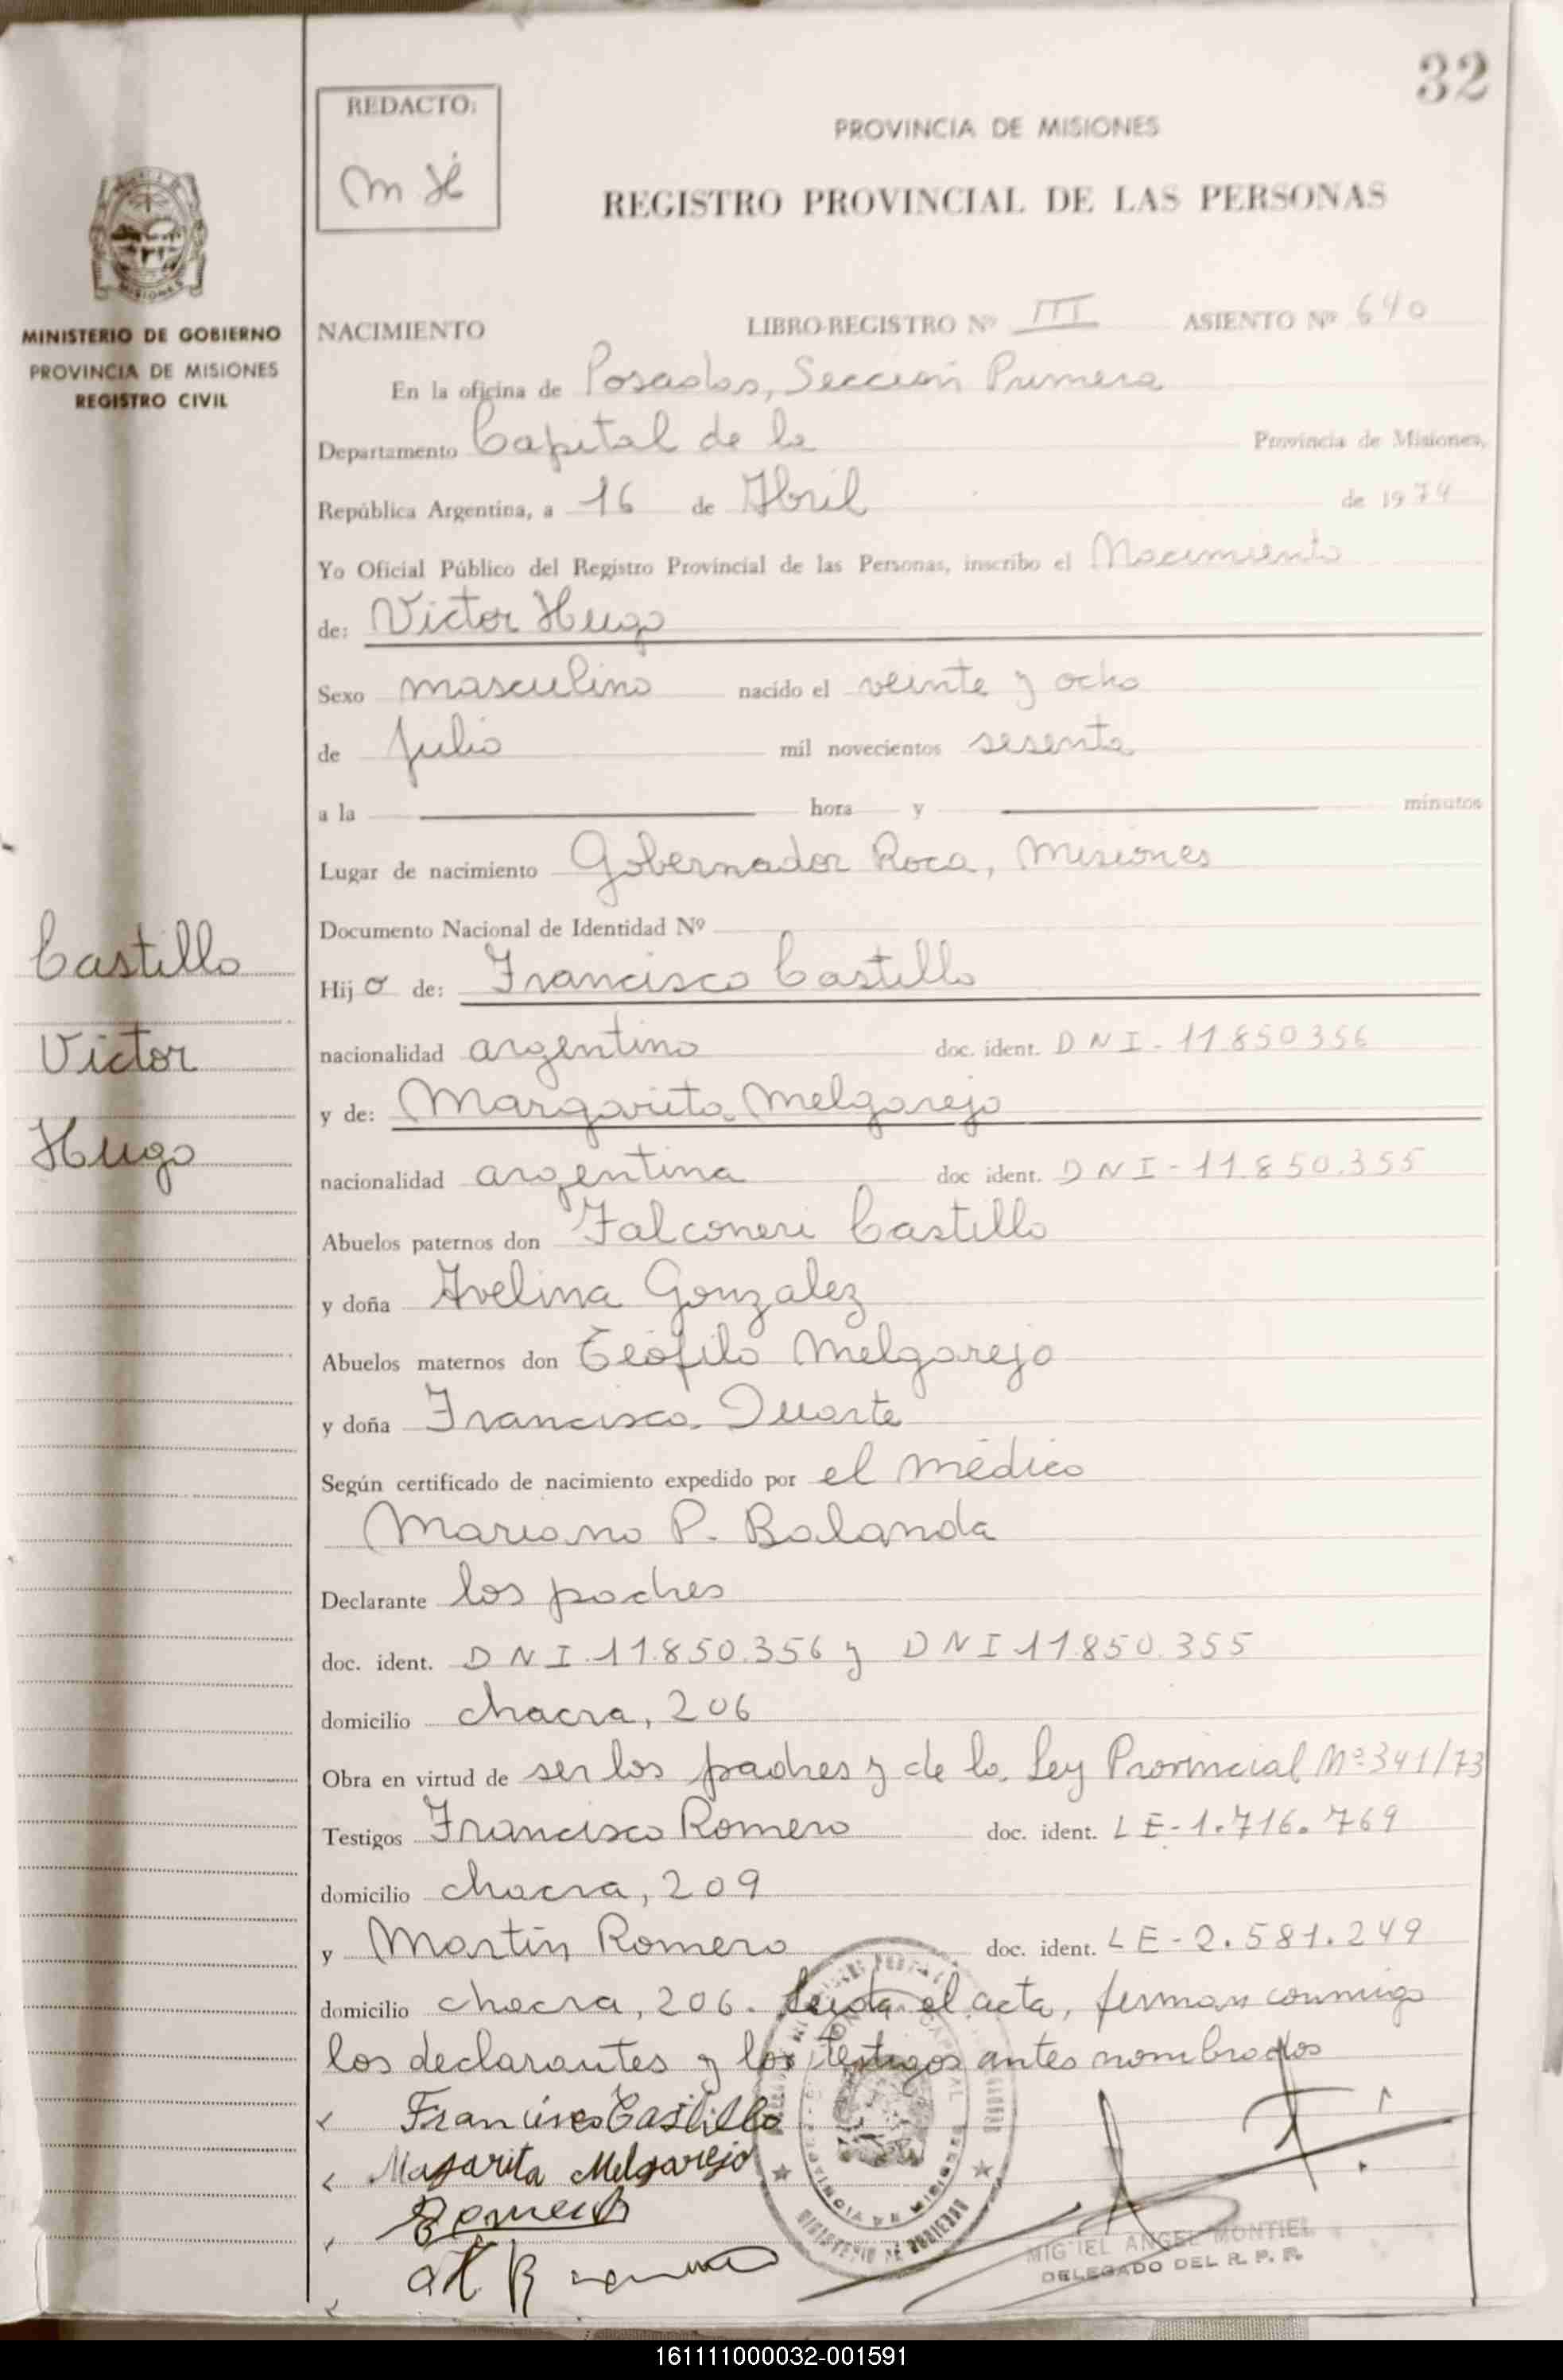 32
REDACTO:
PROVINCIA DE MISIONES
REGISTRO PROVINCIAL DE LAS PERSONAS
MISIONES
MINISTERIO DE GOBIERNO
PROVINCIA DE MISIONES
REGISTRO CIVIL
NACIMIENTO LIBRO-REGISTRO Nº III ASIENTO Nº 640
En la oficina de Posadas, Sección Primera
Departamento Capital de la Provincia de Misiones,
República Argentina, a 16 de Abril de 1974
Yo Oficial Público del Registro Provincial de las Personas, inscribo el Nacimiento
de: Victor Hugo
Sexo masculino nacido el veinte y ocho
de Julio mil novecientos sesenta
a la hora y minutos
Lugar de nacimiento Gobernador Roca, Misiones
Documento Nacional de Identidad Nº
Castillo
Victor
Hugo
Hijo de: Francisco Castillo
nacionalidad argentino doc. ident. DNI-11.850356
y de: Margarita Melgarejo
nacionalidad argentina doc ident. DNI-11.850.355
Abuelos paternos don Falconeri Castillo
y doña Avelina Gonzalez
Abuelos maternos don Teófilo Melgarejo
y doña Francisca Duarte
Según certificado de nacimiento expedido por el médico
Mariano P. Balanda
Declarante los padres
doc. ident. DNI.11.850.356 y DNI 11850.355
domicilio chacra, 206
Obra en virtud de ser los padres y de la Ley Provincial Nº 341/73
Testigos Francisco Romero doc. ident. LE-1.716.769
domicilio chacra, 209
y Martín Romero doc. ident. LE-2.581.249
domicilio chacra, 206. Leída el acta, firman conmigo
los declarantes y los testigos antes nombrados
Francisco Castillo
Magarita Melgarejo
MINISTERIO DE GOBIERNO
PROVINCIA DE MISIONES
MIGUEL ANGEL MONTIEL
DELEGADO DEL R. P. P.
161111000032-001591